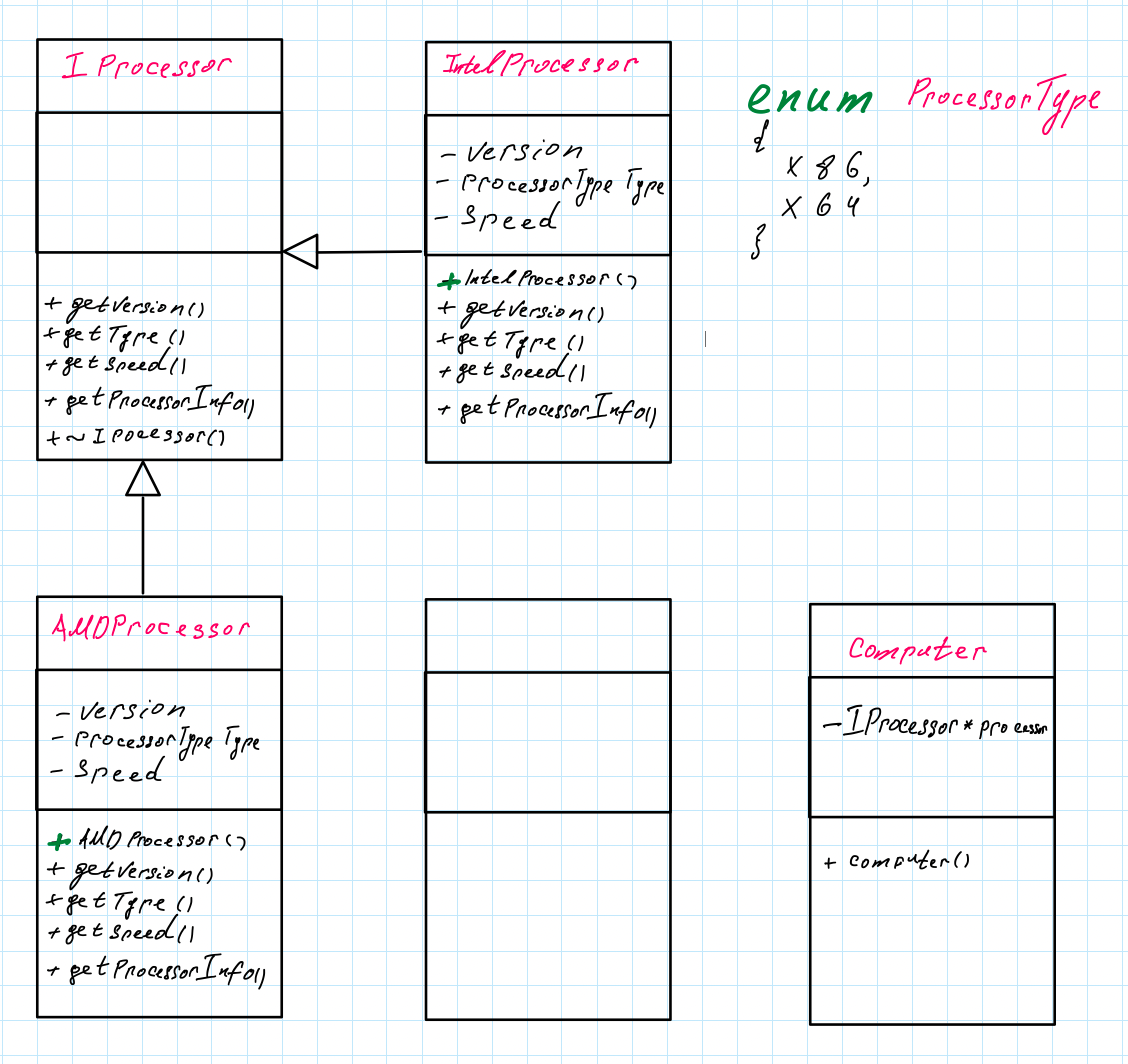 I Processor
+ getVersion()
+ getType()
+ getSpeed()
+ getProcessorInfo()
+ ~ I Pocessor()
IntelProcessor
- Version
- ProcessorType Type
- Speed
+ IntelProcessor()
+ getVersion()
+ getType()
+ getSpeed()
+ getProcessorInfo()
enum ProcessorType
{
X 86,
X 64
}
AMDProcessor
- Version
- ProcessorType Type
- Speed
+ AMDProcessor()
+ getVersion()
+ getType()
+ getSpeed()
+ getProcessorInfo()
Computer
- IProcessor * processor
+ computer()